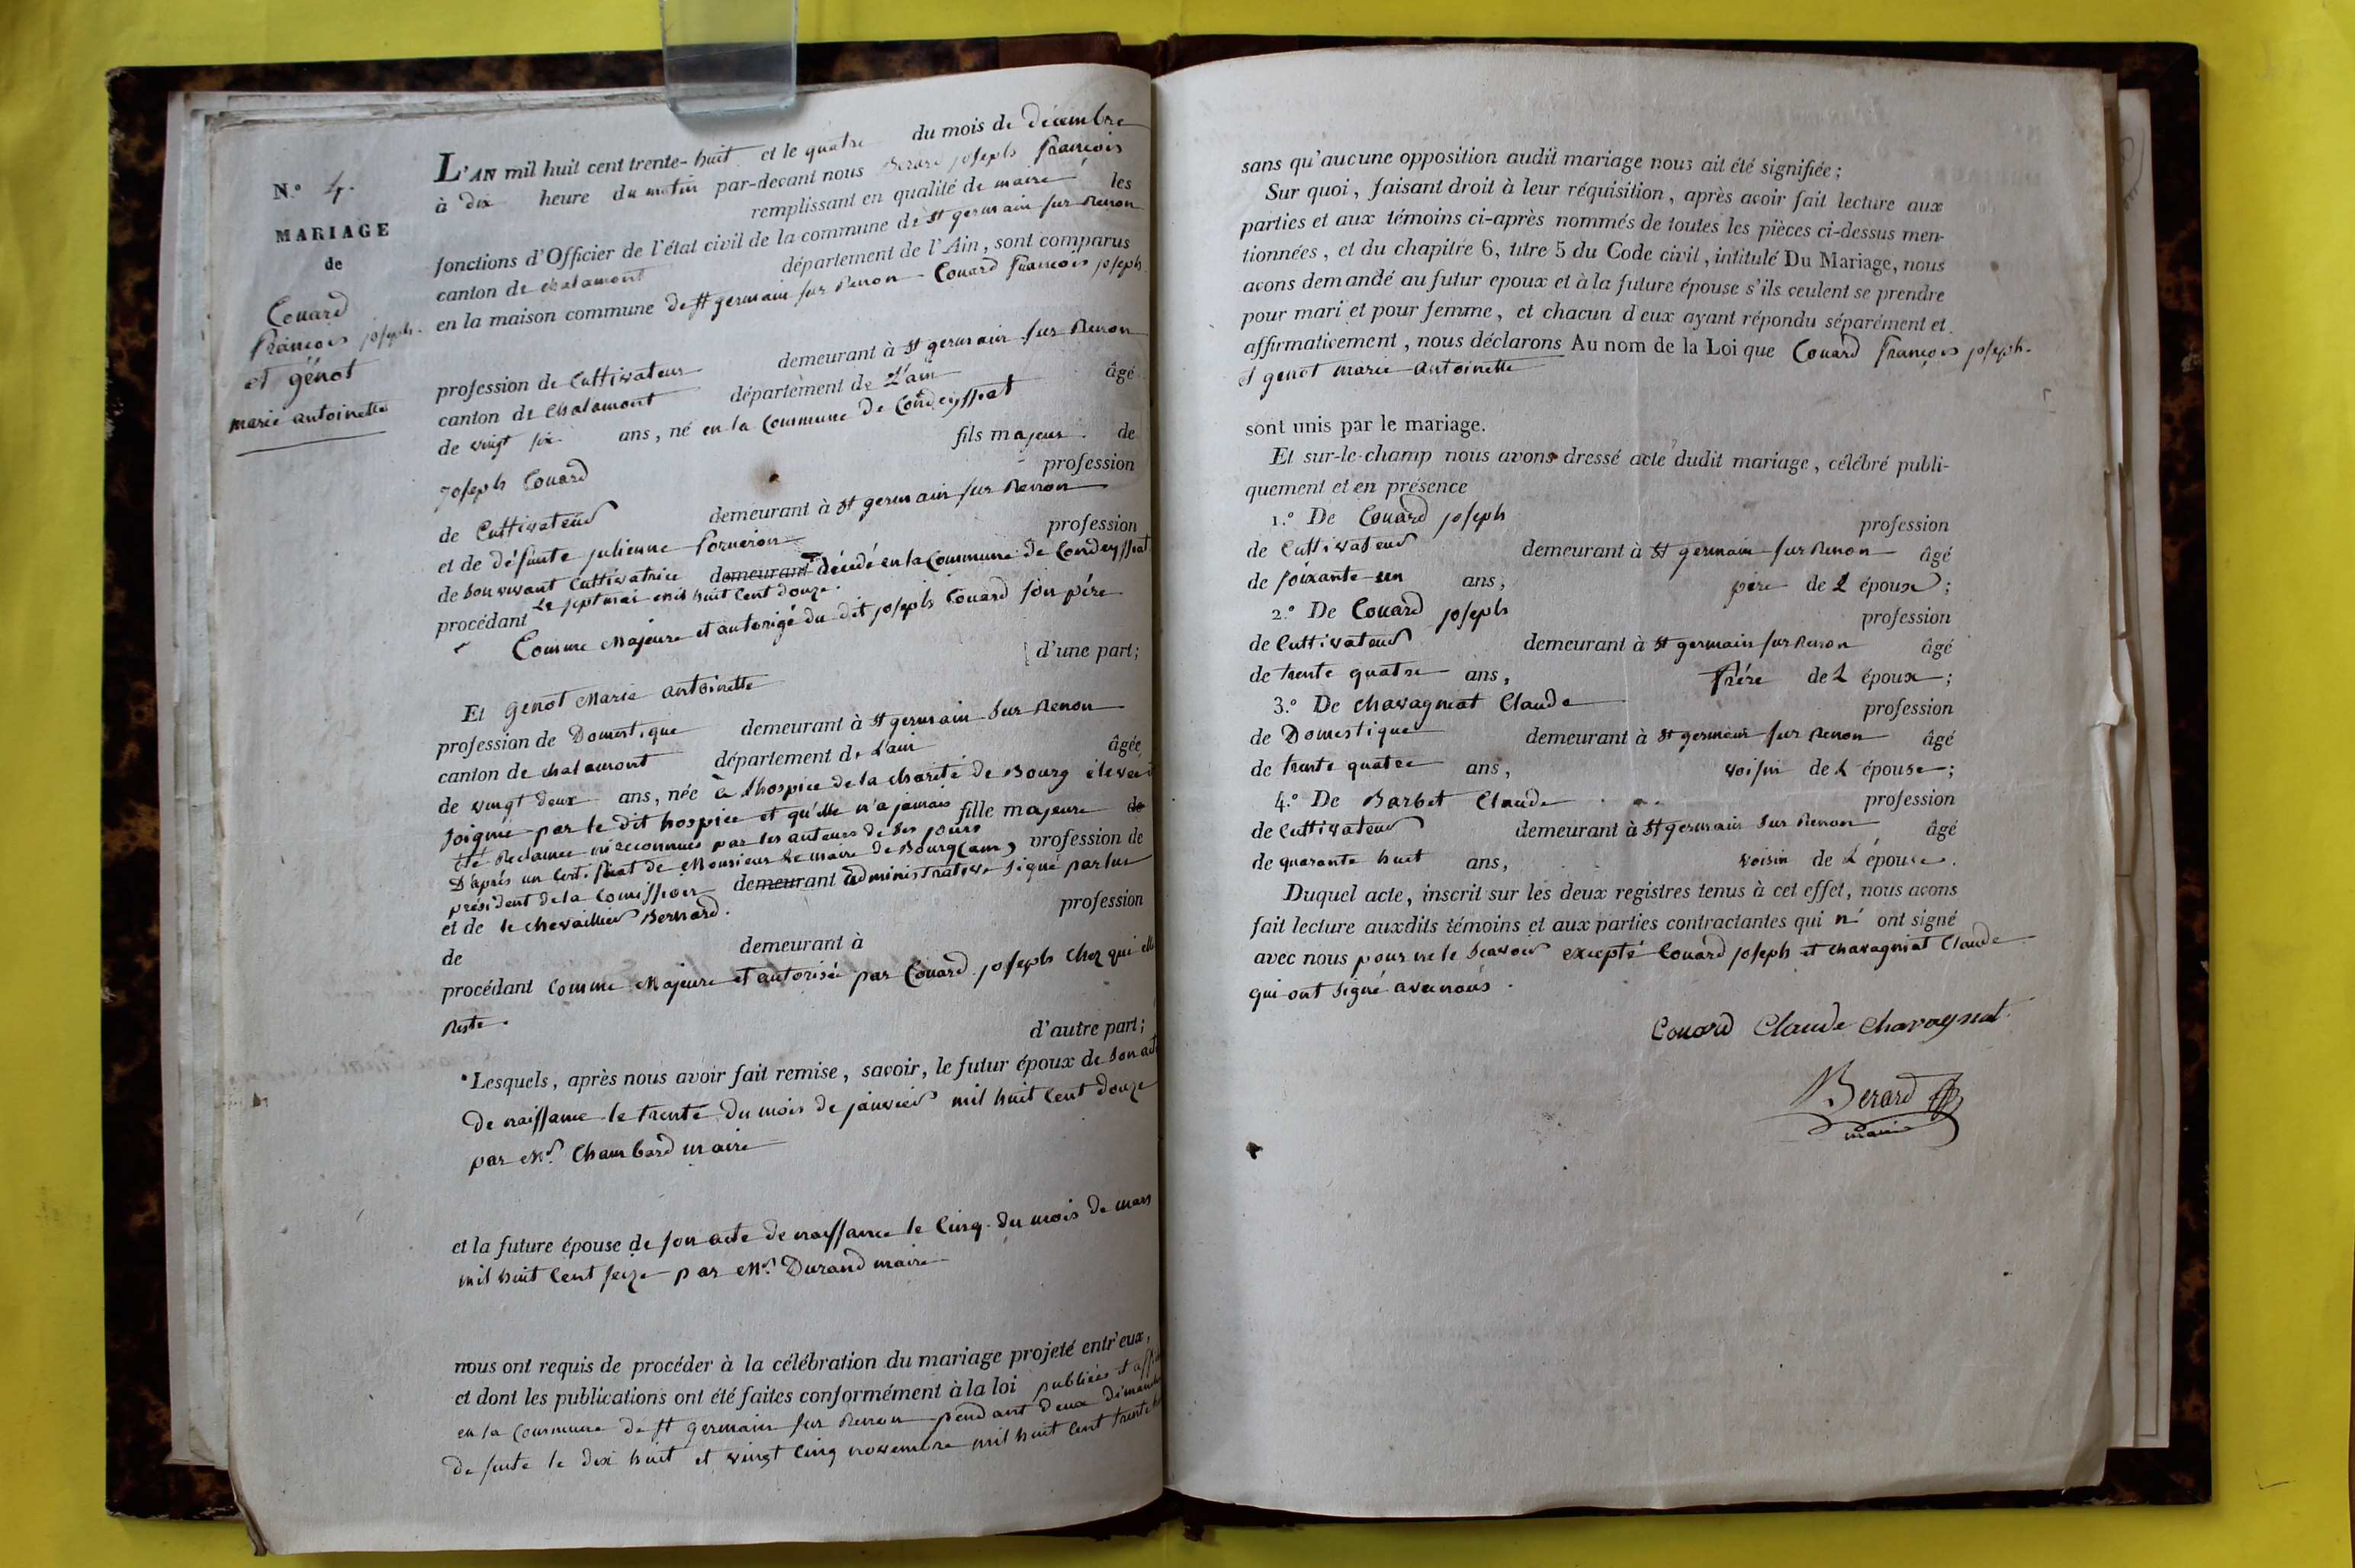 N.º 4.
MARIAGE
de
Couard
François joseph.
et génot
marie antoinette
L'AN mil huit cent trente-huit et le quatre du mois de décembre
à dix heure du matin par-devant nous Berard joseph françois
remplissant en qualité de maire les
fonctions d'Officier de l'état civil de la commune de st germain sur Renon
canton de chalamont département de l'Ain, sont comparus
en la maison commune de st germain sur Renon Couard françois joseph
profession de Cultivateur demeurant à st germain sur Renon
canton de chalamont département de L'ain âgé
de vingt six ans, né en la Commune de Condeyssiat
fils majeur de
joseph Couard profession
de Cultivateur demeurant à st germain sur Renon
et de défunte julienne profession
de Son vivant Cultivatrice demeurant décédé en la Commune de Condeyssiat
Le sept mai mil huit Cent douze.
procédant Comme Majeure et autorigé du dit joseph Couard son père
d'une part;
Et Genot Marie antoinette
profession de Domestique demeurant à st germain Sur Renon
canton de chalamont département de L'ain âgée
de vingt deux ans, née à Lhospice de la charité de Bourg élevé
soignée par le dit hospice et qu'elle n'a jamais fille majeure de
été Reclamée ni reconnue par les auteurs de Ses jours
D'après un Certificat de Monsieur Le maire de Bourg (ain) profession de
président de la Comission demeurant administrative Signé par lui
et de le chevaillier Bernard. profession
de demeurant à
procédant Comme Majeure et autorisée par Couard joseph Chez qui elle
Reste.
d'autre part;
Lesquels, après nous avoir fait remise, savoir, le futur époux de Son acte
De naissance le trente Du mois de janvier mil huit Cent Douze
par Mr. Chambard maire
et la future épouse de son acte de naissance le Cinq Du mois de mars
mil huit Cent seize par Mr. Durand maire
nous ont requis de procéder à la célébration du mariage projeté entr'eux,
et dont les publications ont été faites conformément à la loi publiées et
en la Commune de st Germain sur Renon pendant Deux dimanche
De suite le Dix huit et vingt Cinq novembre mil huit Cent trente
sans qu'aucune opposition audit mariage nous ait été signifiée;
Sur quoi, faisant droit à leur réquisition, après avoir fait lecture aux
parties et aux témoins ci-après nommés de toutes les pièces ci-dessus men-
tionnées, et du chapitre 6, titre 5 du Code civil, intitulé Du Mariage, nous
avons demandé au futur epoux et à la future épouse s'ils veulent se prendre
pour mari et pour femme, et chacun d'eux ayant répondu séparément et
affirmativement, nous déclarons Au nom de la Loi que Couard françois joseph.
et genot marie Antoinette
sont unis par le mariage.
Et sur-le-champ nous avons dressé acte dudit mariage, célébré publi-
quement et en présence
1.º De Couard joseph profession
de Cultivateur demeurant à st germain sur Renon âgé
de soixante un ans, père de L'époux;
2.º De Couard joseph profession
de Cultivateur demeurant à st germain sur Renon âgé
de trente quatre ans, frére de L époux;
3.º De Chavagniat Claude profession
de Domestique demeurant à st germain sur Renon âgé
de trente quatre ans, voisin de L épouse;
4.º De Barbet Claude profession
de Cultivateur demeurant à st germain Sur Renon âgé
de quarante huit ans, voisin de L'épouse.
Duquel acte, inscrit sur les deux registres tenus à cet effet, nous avons
fait lecture auxdits témoins et aux parties contractantes qui n' ont signé
avec nous pour ne le Scavoir excepté Couard joseph et Chavagniat Claude
qui ont Signé avec nous.
Couard Claude Chavagnat
Berard
maire